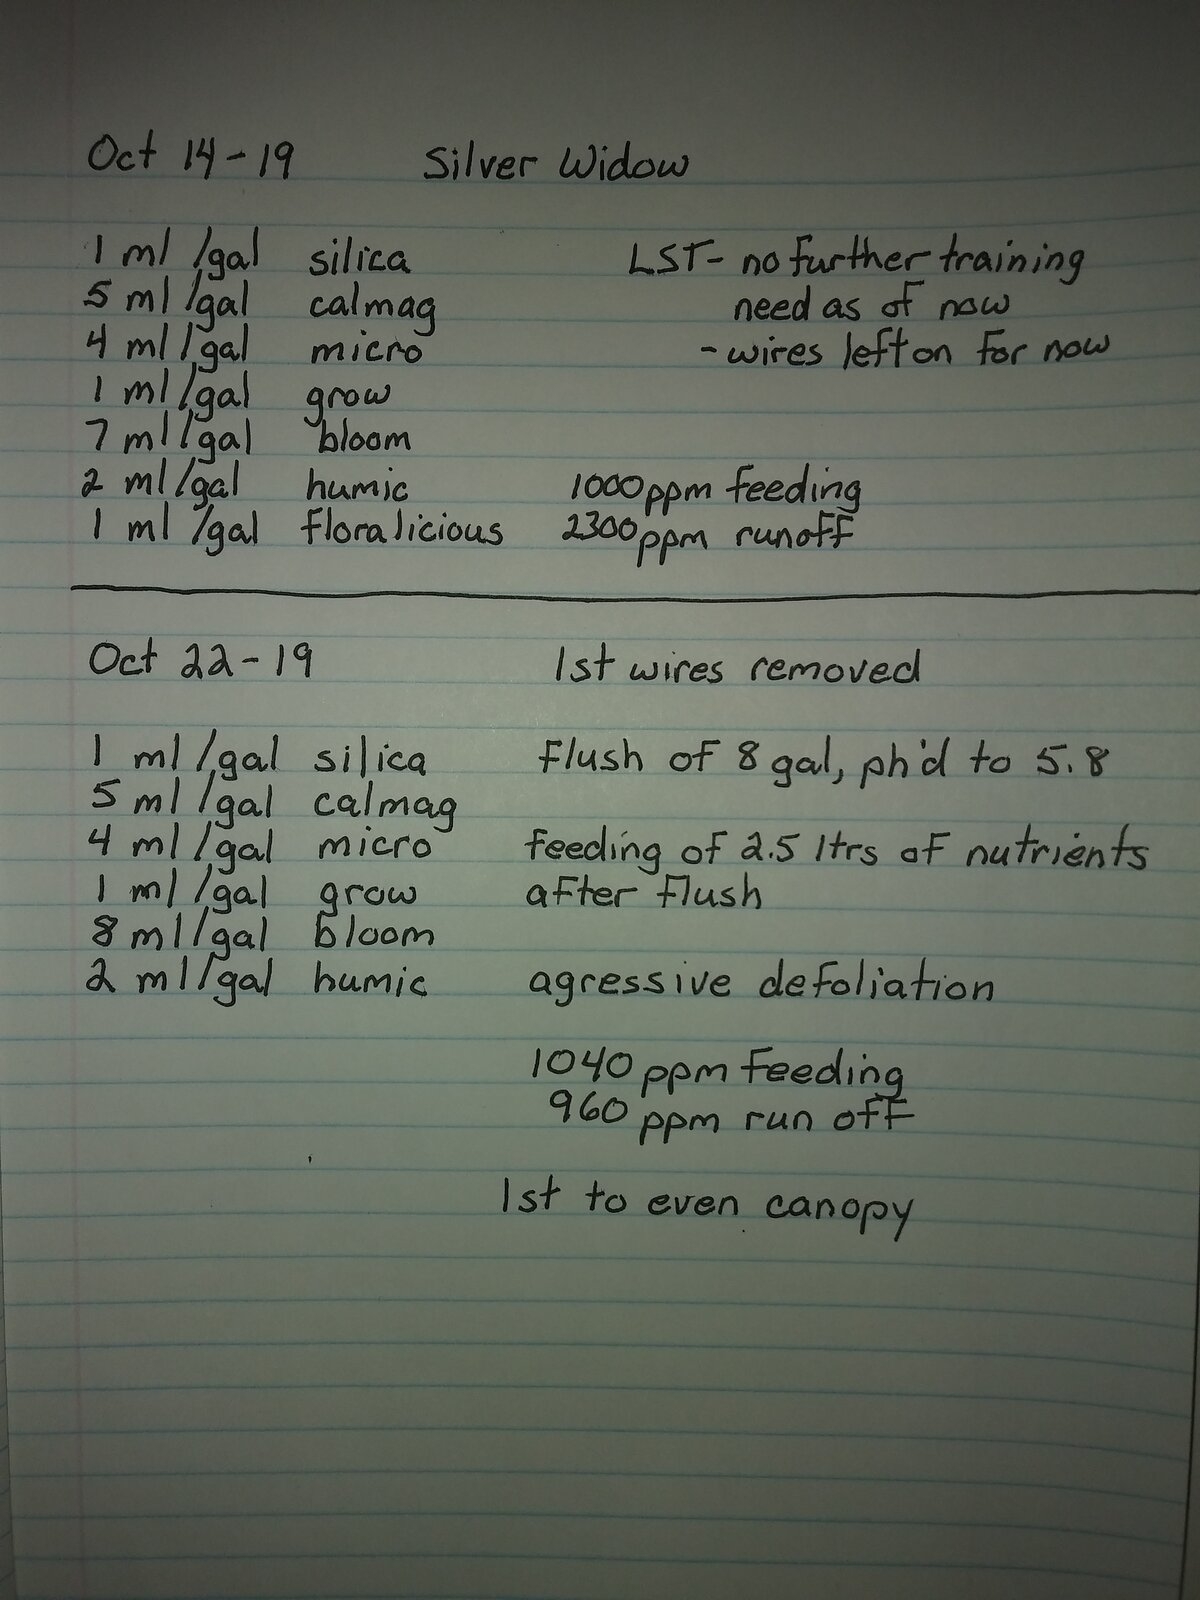 Oct 14-19 Silver Widow
1 ml /gal silica LST- no further training
5 ml /gal calmag need as of now
4 ml /gal micro -wires left on for now
1 ml /gal grow
7 ml /gal bloom
2 ml /gal humic 1000 ppm feeding
1 ml /gal floralicious 2300 ppm runoff
Oct 22-19 lst wires removed
1 ml /gal silica flush of 8 gal, ph'd to 5.8
5 ml /gal calmag
4 ml /gal micro feeding of 2.5 ltrs of nutrients
1 ml /gal grow after flush
8 ml /gal bloom
2 ml /gal humic agressive defoliation
1040 ppm feeding
960 ppm run off
lst to even canopy